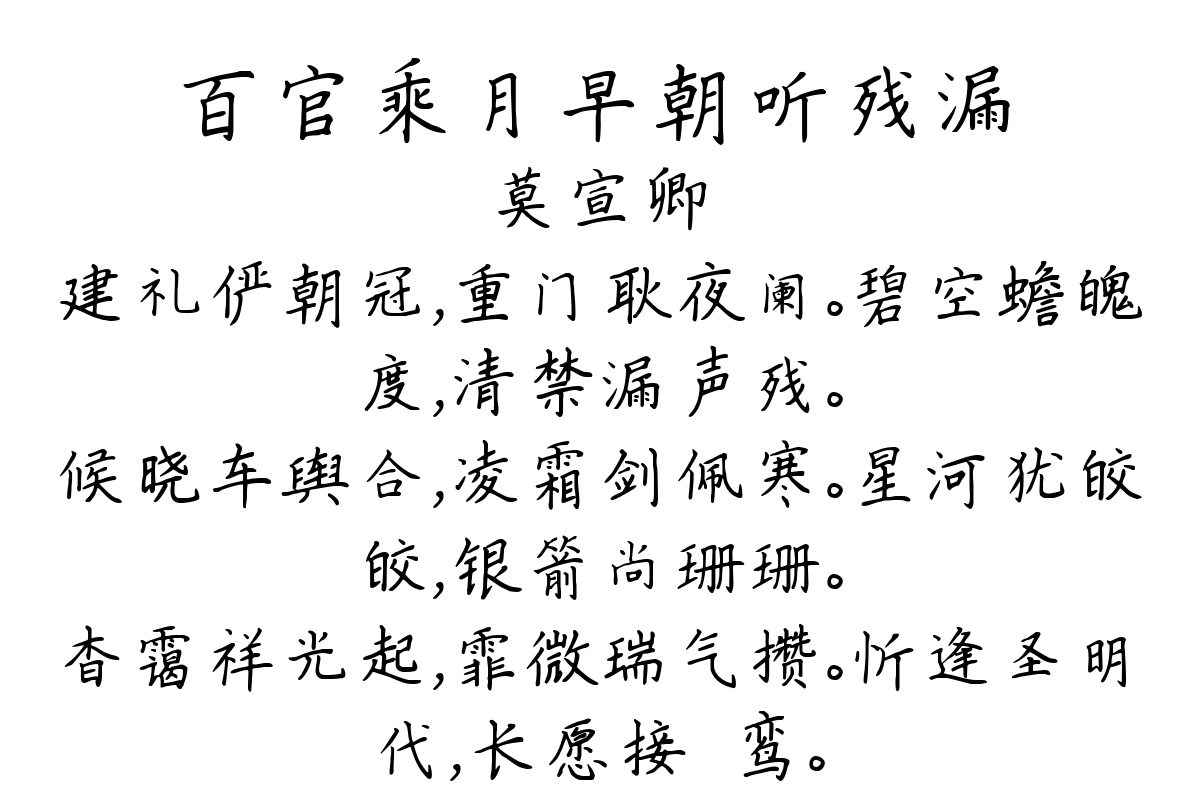 百官乘月早朝听残漏
莫宣卿
建礼俨朝冠,重门耿夜阑。碧空蟾魄
度,清禁漏声残。
候晓车舆合,凌霜剑佩寒。星河犹皎
皎,银箭尚珊珊。
杳霭祥光起,霏微瑞气攒。忻逢圣明
代,长愿接 鸾。